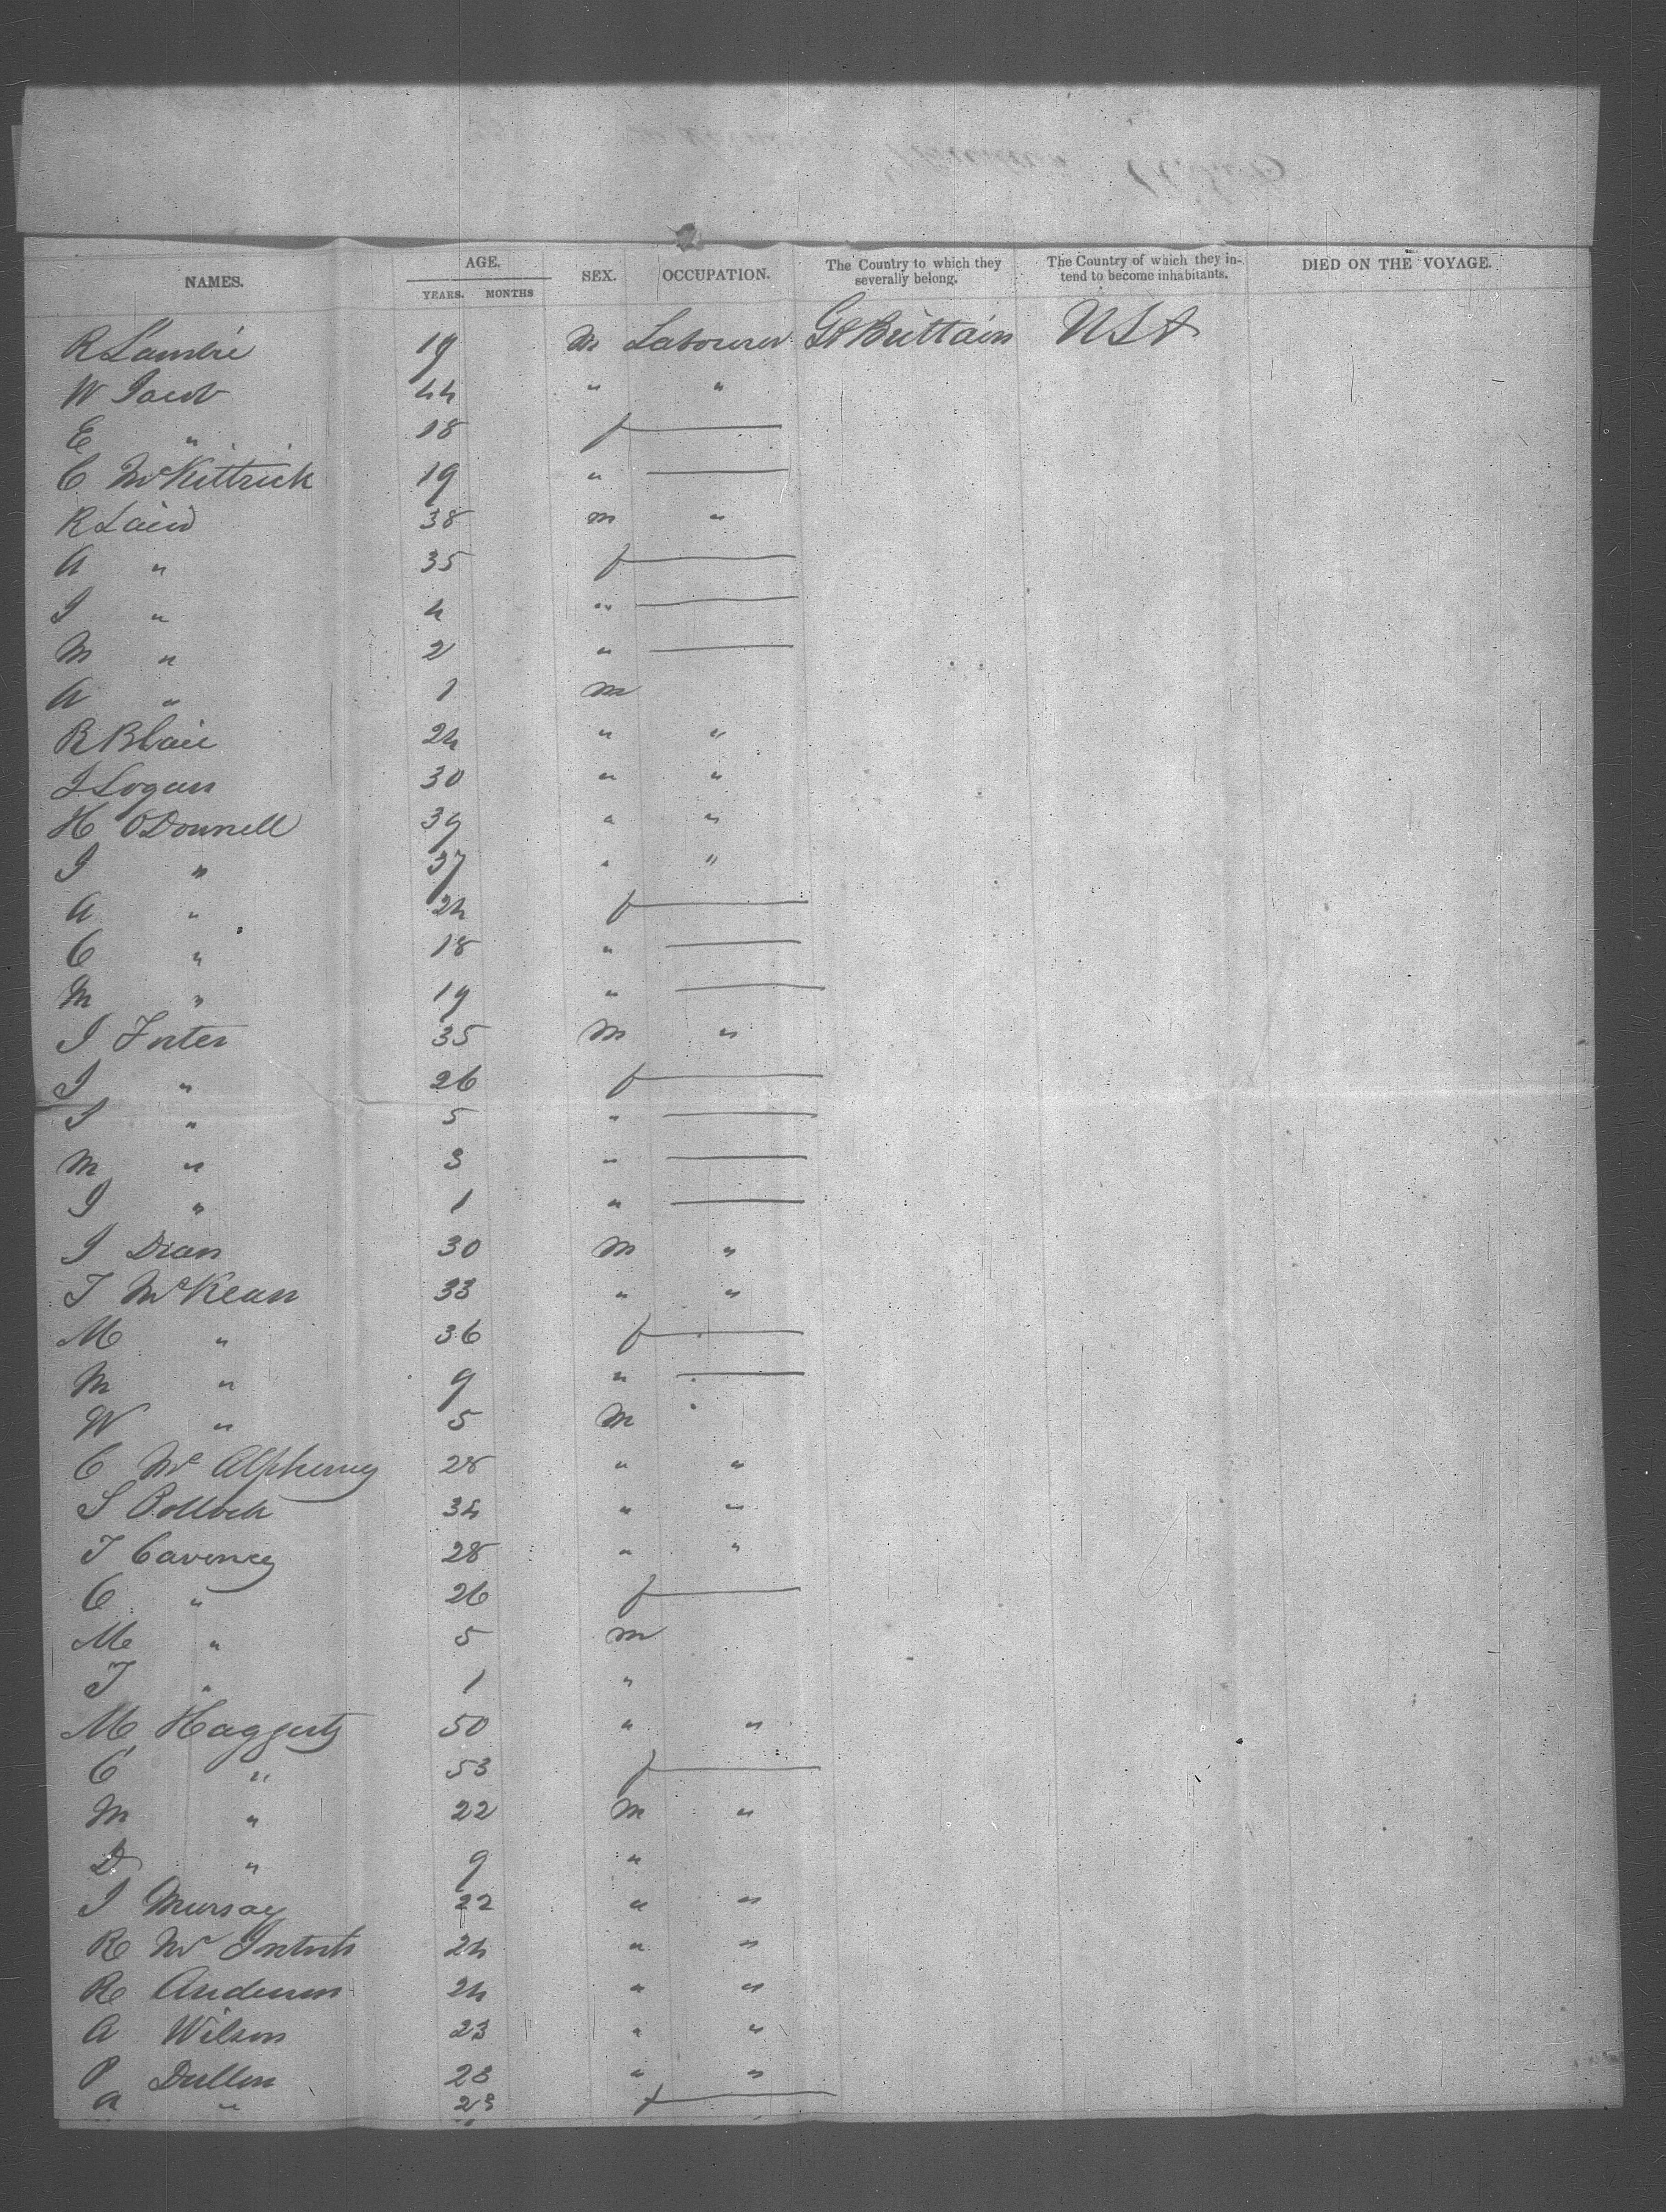 NAMES. AGE. YEARS. MONTHS SEX. OCCUPATION. The Country to which they severally belong. The Country of which they intend to become inhabitants. DIED ON THE VOYAGE.
R Lambie 19 m Labourer Gt Brittain USA
W Jacob 44 " "
E " 18 f
C McKittrick 19 "
R Laird 38 m "
A " 35 f
J " 4 "
M " 2 "
A " 1 m
R Blair 24 " "
J Logan 30 " "
H O'Donnell 39 " "
J " 37 " "
A " 24 f
C " 18 "
M " 19 "
J 35 m "
J " 26 f
J " 5 "
M " 3 "
J " 1 "
J Dean 30 m "
T McKean 33 " "
M " 36 f
M " 9 "
W " 5 m
C Mc 28 " "
S Pollock 34 " "
T Caveney 28 " "
C " 26 f
M " 5 m
T " 1 "
M Haggerty 50 " "
C " 53 f
M " 22 m "
D " 9 "
J Murray 22 " "
R Mc 24 " "
R Anderson 24 " "
A Wilson 23 " "
P Dullen 28 " "
A " 23 f